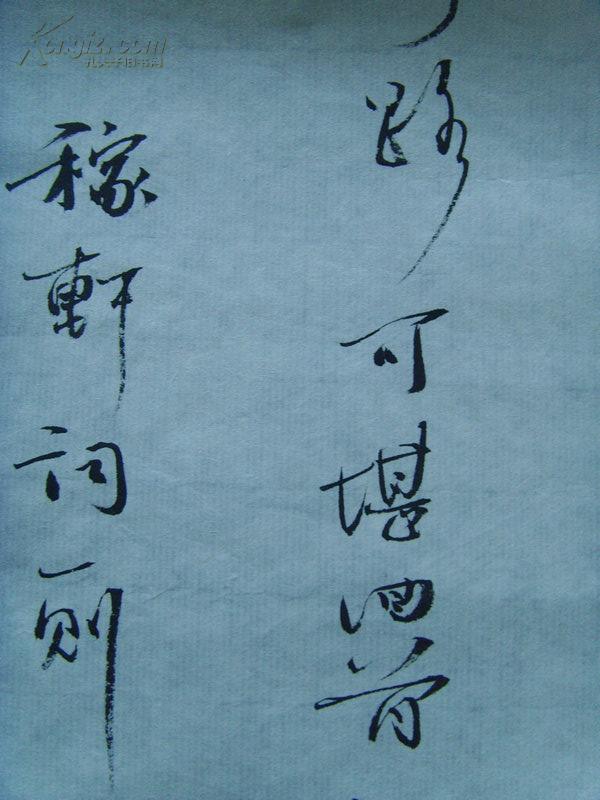 路可堪回首
稼軒词一则
Kongfz.com
孔夫子旧书网